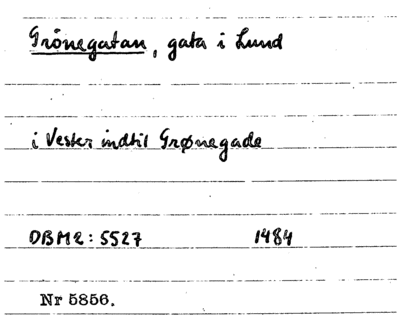 Grönegatan, gata i Lund
i Vester indtil Grønegade
DBM2: 5527 1484
Nr 5856.